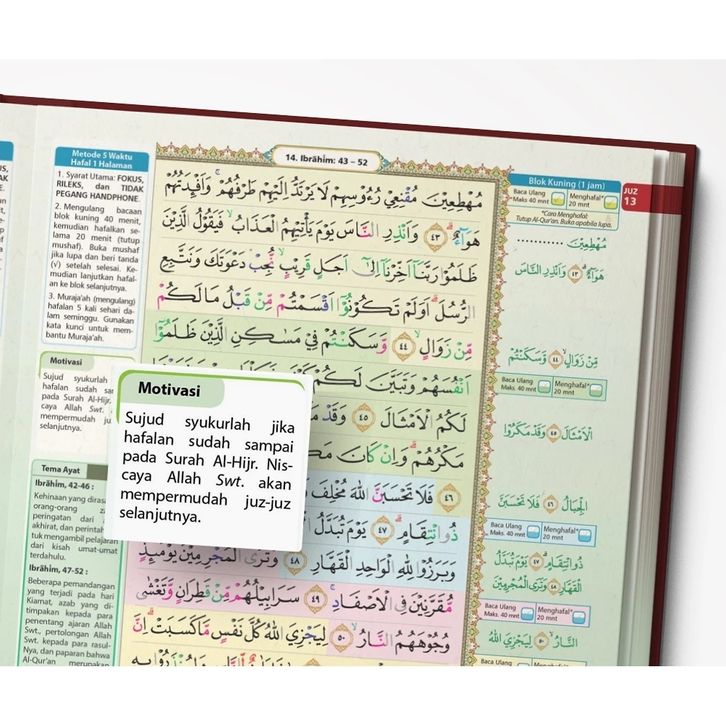 Metode 5 Waktu
Hafal 1 Halaman
1. Syarat Utama: FOKUS,
RILEKS, dan TIDAK
PEGANG HANDPHONE.
2. Mengulang bacaan
blok kuning 40 menit,
kemudian hafalkan se-
lama 20 menit (tutup
mushaf). Buka mushaf
jika lupa dan beri tanda
(√) setelah selesai. Ke-
mudian lanjutkan hafal-
an ke blok selanjutnya.
3. Muraja'ah (mengulang)
hafalan 5 kali sehari da-
lam seminggu. Gunakan
kata kunci untuk mem-
bantu Muraja'ah.
Motivasi
Sujud syukurlah
hafalan sudah
pada Surah Al-Hijr.
caya Allah Swt.
mempermudah
selanjutnya.
Motivasi
Sujud syukurlah jika
hafalan sudah sampai
pada Surah Al-Hijr. Nis-
caya Allah Swt. akan
mempermudah juz-juz
selanjutnya.
Tema Ayat
Ibrāhim, 42-46 :
Kehinaan yang
orang-orang
peringatan dari
akhirat, dan
tuk mengambil pelajaran
dari kisah umat-umat
terdahulu.
Ibrāhim, 47-52 :
Beberapa pemandangan
yang terjadi pada hari
Kiamat, azab yang di-
timpakan kepada para
penentang ajaran Allah
Swt., pertolongan Allah
Swt. kepada para rasul-
Nya, dan paparan bahwa
Al-Qur'an merupakan
14. Ibrāhim: 43 – 52
مُهْطِعِيْنَ مُقْنِعِيْ رُءُوْسِهِمْ لَا يَرْتَدُّ اِلَيْهِمْ طَرْفُهُمْ ۚوَاَفْـِٕدَتُهُمْ
هَوَاۤءٌ ۗ ٤٣ وَاَنْذِرِ النَّاسَ يَوْمَ يَأْتِيْهِمُ الْعَذَابُۙ فَيَقُوْلُ الَّذِيْنَ
ظَلَمُوْا رَبَّنَآ اَخِّرْنَآ اِلٰٓى اَجَلٍ قَرِيْبٍۙ نُّجِبْ دَعْوَتَكَ وَنَتَّبِعِ
الرُّسُلَۗ اَوَلَمْ تَكُوْنُوْٓا اَقْسَمْتُمْ مِّنْ قَبْلُ مَا لَكُمْ
مِّنْ زَوَالٍۙ ٤٤ وَّسَكَنْتُمْ فِيْ مَسٰكِنِ الَّذِيْنَ ظَلَمُوْٓا
اَنْفُسَهُمْ وَتَبَيَّنَ لَكُمْ
لَكُمُ الْاَمْثَالَ ٤٥ وَقَدْ
مَكْرُهُمْۗ وَاِنْ كَانَ
٤٦ فَلَا تَحْسَبَنَّ اللّٰهَ مُخْلِفَ
ذُو انْتِقَامٍۗ ٤٧ يَوْمَ تُبَدَّلُ
وَبَرَزُوْا لِلّٰهِ الْوَاحِدِ الْقَهَّارِ ٤٨ وَتَرَى الْمُجْرِمِيْنَ يَوْمَىِٕذٍ
مُّقَرَّنِيْنَ فِى الْاَصْفَادِۚ ٤٩ سَرَابِيْلُهُمْ مِّنْ قَطِرَانٍ وَّتَغْشٰى
وُجُوْهَهُمُ النَّارُۙ ٥٠ لِيَجْزِيَ اللّٰهُ كُلَّ نَفْسٍ مَّا كَسَبَتْۗ اِنَّ
Blok Kuning (1 jam)
JUZ
13
Baca Ulang
Maks 40 mnt
Menghafal*
20 mnt
*Cara Menghafal:
Tutup Al-Qur'an. Buka apabila lupa.
مُهْطِعِيْنَ ............
هَوَاۤءٌ ۗ ٤٣ وَاَنْذِرِ النَّاسَ
مِّنْ زَوَالٍۙ ٤٤ وَّسَكَنْتُمْ
Baca Ulang
Maks. 40 mnt
Menghafal*
20 mnt
الْاَمْثَالَ ٤٥ وَقَدْ مَكَرُوْا
الْجِبَالُ ٤٦ فَلَا تَحْسَبَنَّ
Baca Ulang
Maks. 40 mnt
Menghafal*
20 mnt
ذُو انْتِقَامٍۗ ٤٧ يَوْمَ تُبَدَّلُ
الْقَهَّارِ ٤٨ وَتَرَى الْمُجْرِمِيْنَ
Baca Ulang
Maks. 40 mnt
Menghafal*
20 mnt
النَّارُۙ ٥٠ لِيَجْزِيَ اللّٰهُ
Baca Ulang
Maks. 40 mnt
Menghafal*
20 mnt